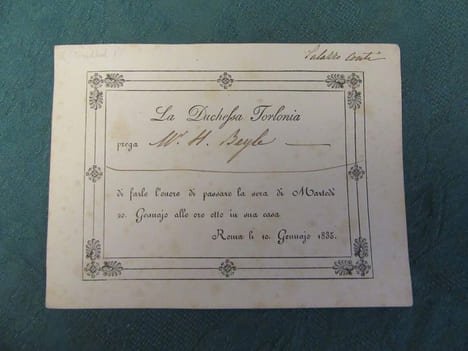 (Stendhal)
Palazzo Conti
La Ducheſsa Torlonia
prega Mr. H. Beyle
di farle l'onore di passare la sera di Martedì
20. Gennajo alle ore otto in sua casa
Roma li 10. Gennajo 1835.